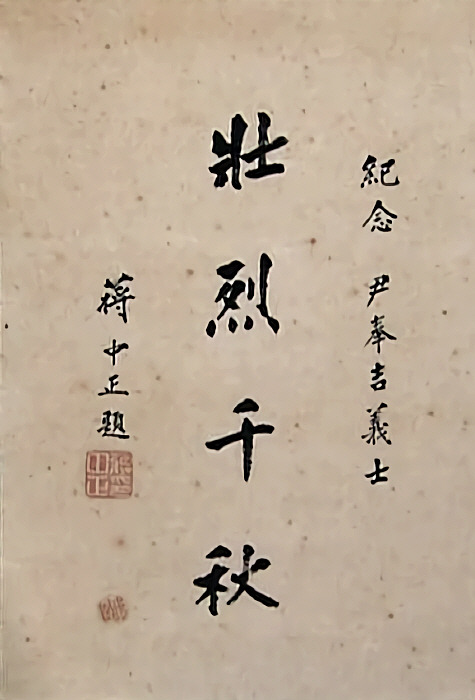 紀念 尹奉吉義士
壯烈千秋
蔣中正題